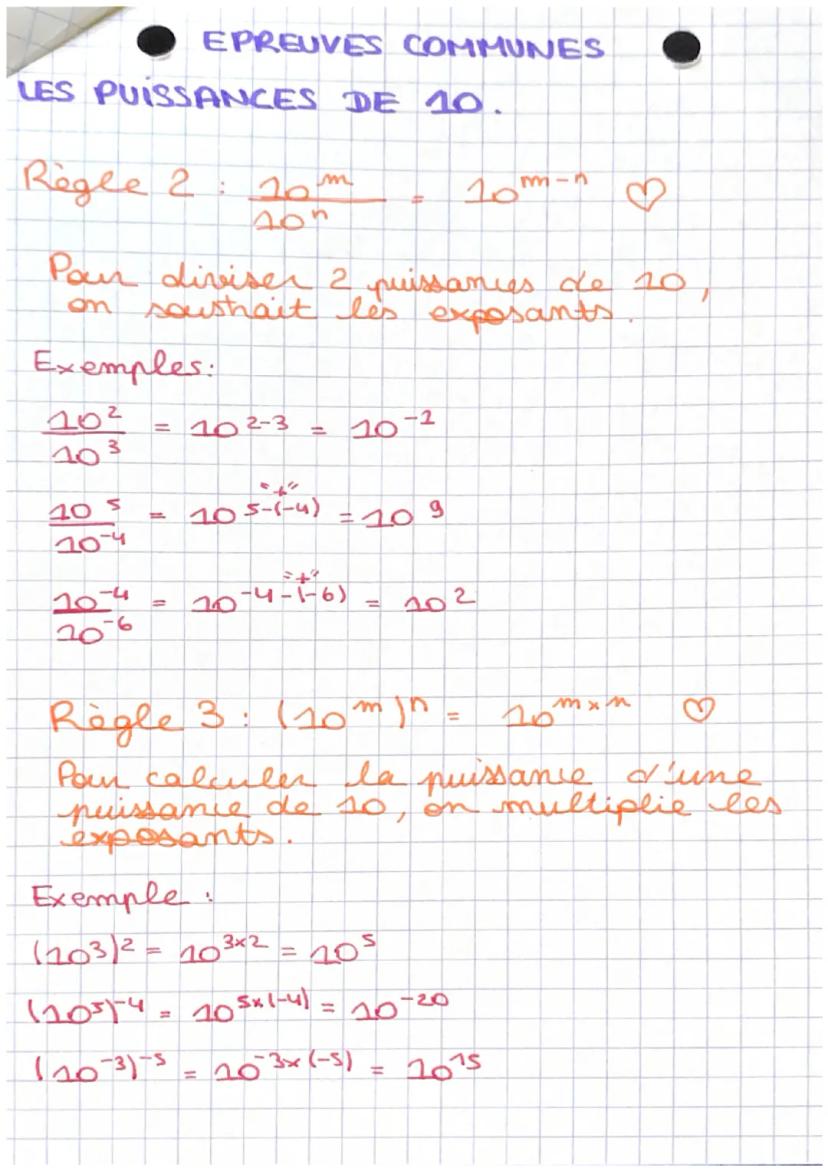 EPREUVES COMMUNES
LES PUISSANCES DE 10.
Règle 2 : 10^m / 10^n = 10^(m-n) ♡
Pour diviser 2 puissances de 10,
on soustrait les exposants.
Exemples:
10^2 / 10^3 = 10^(2-3) = 10^-1
"+"
10^5 / 10^-4 = 10^(5-(-4)) = 10^9
"+"
10^-4 / 10^-6 = 10^(-4-(-6)) = 10^2
Règle 3 : (10^m)^n = 10^(m×n) ♡
Pour calculer la puissance d'une
puissance de 10, on multiplie les
exposants.
Exemple :
(10^3)^2 = 10^(3×2) = 10^5
(10^5)^-4 = 10^(5×(-4)) = 10^-20
(10^-3)^-5 = 10^(-3×(-5)) = 10^15